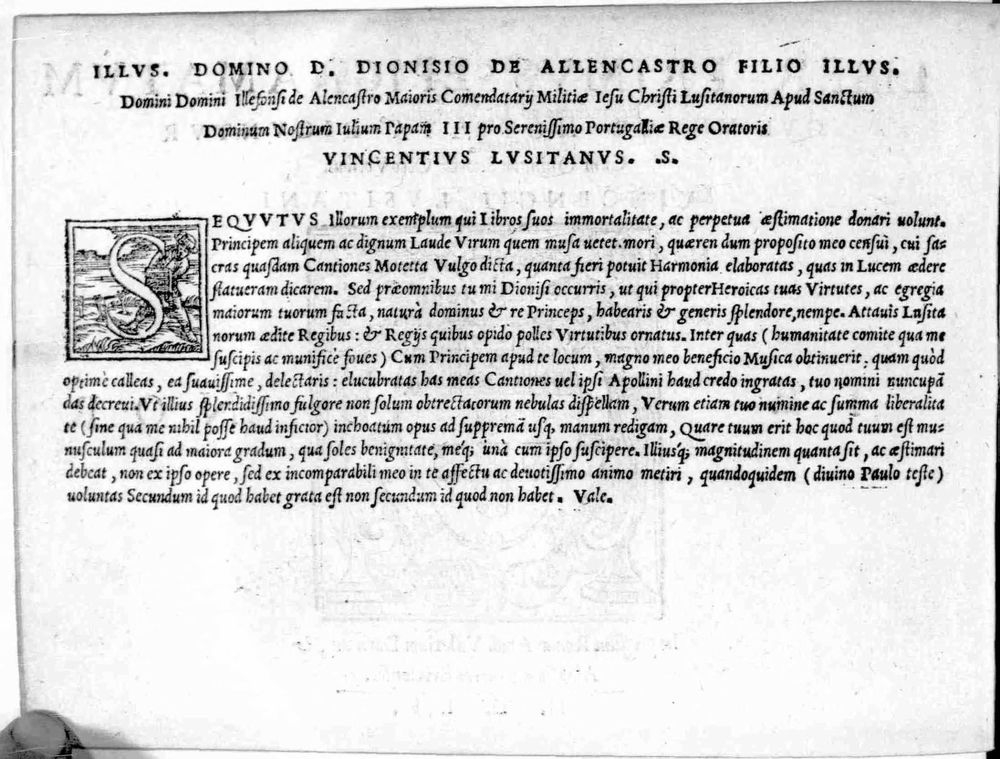 ILLVS. DOMINO D. DIONISIO DE ALLENCASTRO FILIO ILLVS.
Domini Domini Illefonsi de Alencastro Maioris Comendatarij Militiæ Iesu Christi Lusitanorum Apud Sanctum
Dominum Nostrum Iulium Papam III pro Serenissimo Portugalliæ Rege Oratoris
VINCENTIVS LVSITANVS. .S.
SEQVVTVS Illorum exemplum qui Libros suos immortalitate, ac perpetua æstimatione donari uolunt.
Principem aliquem ac dignum Laude Virum quem musa uetet. mori, quæren dum proposito meo censui, cui sa=
cras quasdam Cantiones Motetta Vulgo dicta, quanta fieri potuit Harmonia elaboratas, quas in Lucem ædere
statueram dicarem. Sed præomnibus tu mi Dionisi occurris, ut qui propterHeroicas tuas Virtutes, ac egregia
maiorum tuorum facta, naturà dominus & re Princeps, habearis & generis splendore, nempe. Attauis Lusita
norum ædite Regibus: & Regijs quibus opido polles Virtutibus ornatus. Inter quas (humanitate comite qua me
suscipis ac munificè foues) Cum Principem apud te locum, magno meo beneficio Musica obtinuerit. quam quòd
optimè calleas, ea suauissime, delectaris: elucubratas has meas Cantiones uel ipsi Apollini haud credo ingratas, tuo nomini nuncupã
das decreui. Vt illius splendidissimo fulgore non solum obtrectatorum nebulas dispellam, Verum etiam tuo numine ac summa liberalita
te (sine qua me nihil posse haud inficior) inchoatum opus ad supremã usq; manum redigam, Quare tuum erit hoc quod tuum est mu=
nusculum quasi ad maiora gradum, qua soles benignitate, meq; unà cum ipso suscipere. Illiusq; magnitudinem quanta sit, ac æstimari
debeat, non ex ipso opere, sed ex incomparabili meo in te affectu ac deuotissimo animo metiri, quandoquidem (diuino Paulo teste)
uoluntas Secundum id quod habet grata est non secundum id quod non habet. Vale.